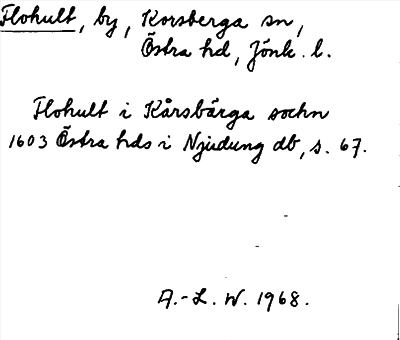 Flohult, by, Korsberga sn,
Östra hd, Jönk. l.
Flohult i Kårsbärga sochn
1603 Östra hds i Njudung db, s. 67.
A.-L. W. 1968.